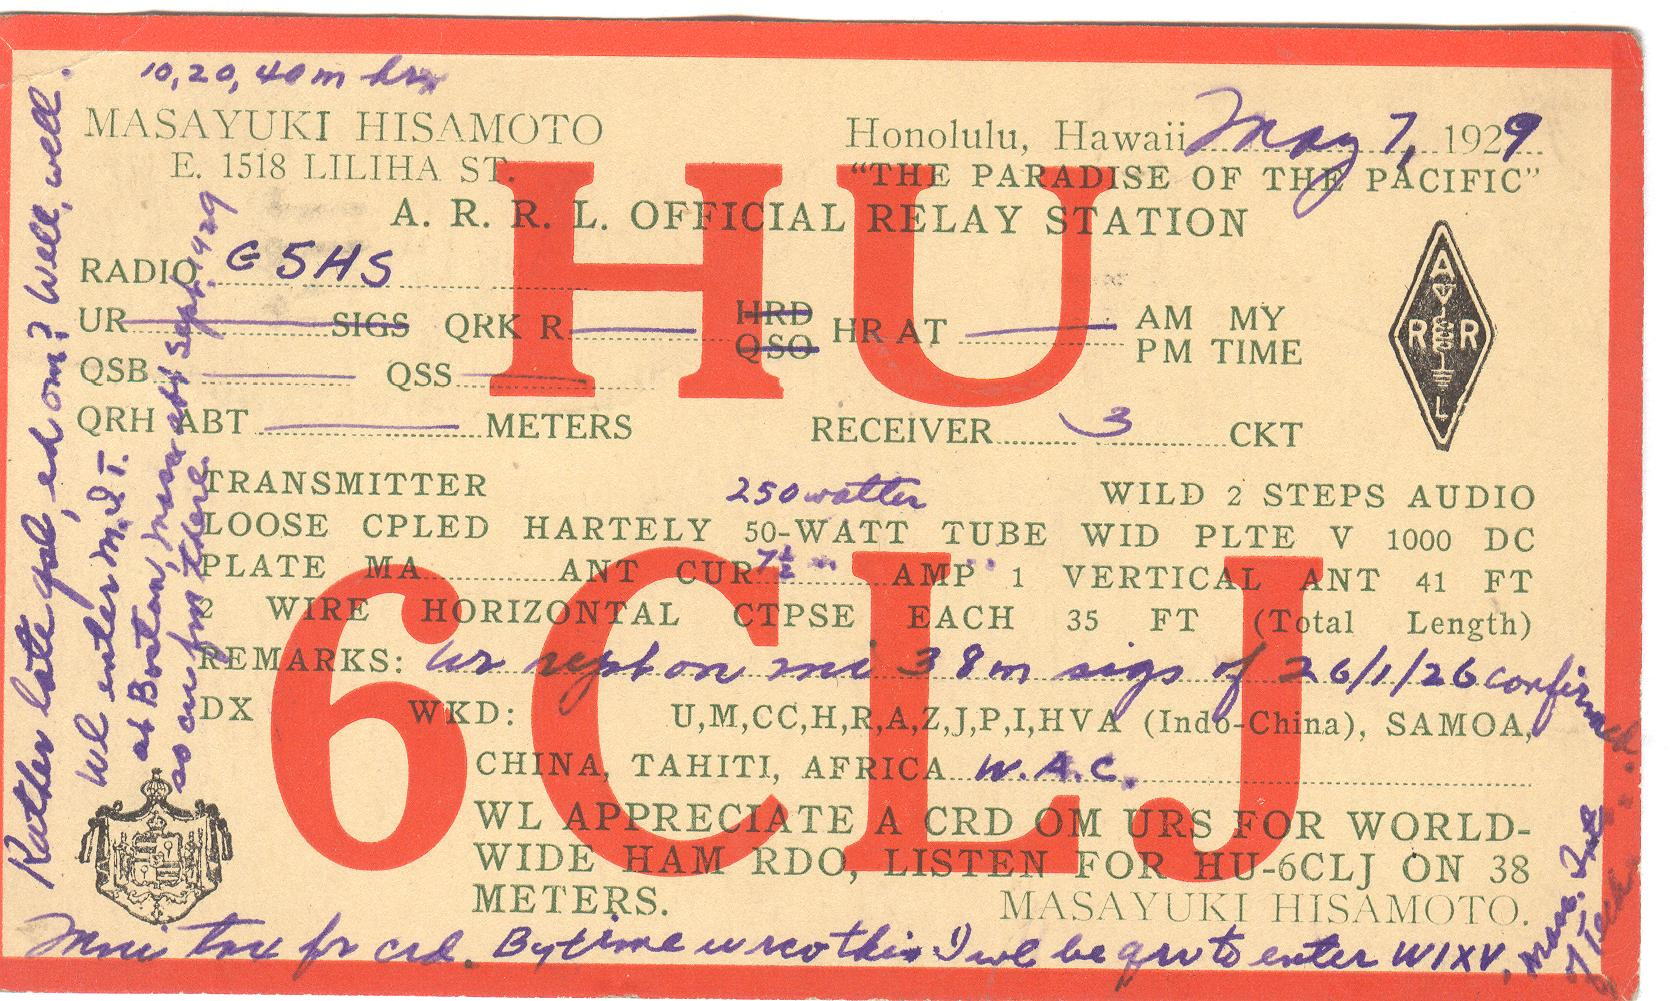 10, 20, 40m hrx
MASAYUKI HISAMOTO
E. 1518 LILIHA ST.
Honolulu, Hawaii May 7, 1929
“THE PARADISE OF THE PACIFIC”
A. R. R. L. OFFICIAL RELAY STATION
HU
RADIO G5HS
UR SIGS QRK R HRD QSO HR AT AM PM MY TIME
QSB QSS
QRH ABT METERS RECEIVER 3 CKT
A R R L
TRANSMITTER 250 watter WILD 2 STEPS AUDIO
LOOSE CPLED HARTELY 50-WATT TUBE WID PLTE V 1000 DC
PLATE MA ANT CUR 7½ AMP 1 VERTICAL ANT 41 FT
2 WIRE HORIZONTAL CTPSE EACH 35 FT (Total Length)
REMARKS: Ur rept on mi 38m sigs of 26/1/26 confirmed.
6CLJ
DX WKD: U,M,CC,H,R,A,Z,J,P,I,HVA (Indo-China), SAMOA,
CHINA, TAHITI, AFRICA W.A.C.
WL APPRECIATE A CRD OM URS FOR WORLD-
WIDE HAM RDO, LISTEN FOR HU-6CLJ ON 38
METERS. MASAYUKI HISAMOTO.
Mni tnx fr crd. By time u rcv this I wl be qrv to enter W1XV, Mass. Inst. of Tech.
Rather late qsl, eh om? Well, well.
Wl enter M.I.T.
at Boston, Mass abt Sept. 1929
so cu fm there.